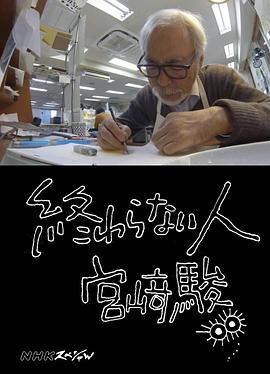 終わらない人
宮﨑駿
NHKスペシャル